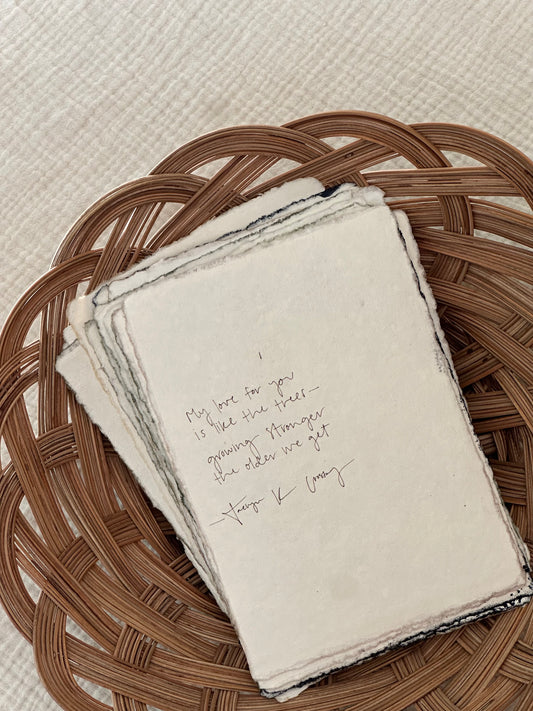 My love for you
is like the trees—
growing stronger
the older we get